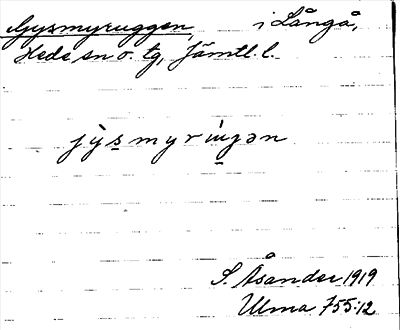 Gysmyruggen i Långå,
Hede sn o. tg, Jämtl. l.
jy̌smyrɯ̌ɲən
S. Åsander 1919
Ulma 755:12